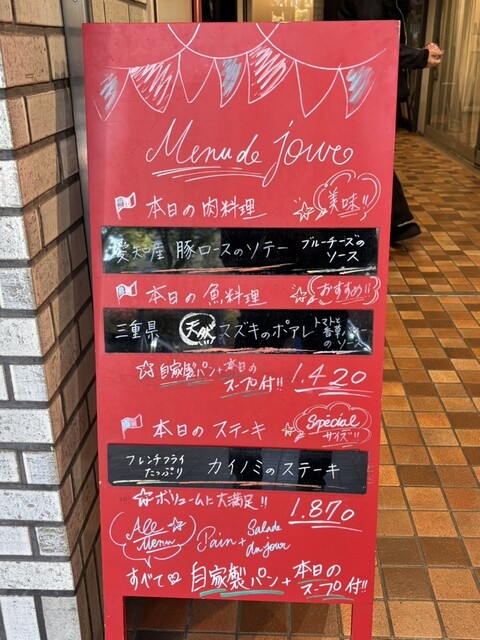 Menu de jour
本日の肉料理 美味!!
愛知産 豚ロースのソテー ブルーチーズのソース
本日の魚料理 おすすめ!!
三重県 天然!! スズキのポアレ トマトと香草の
自家製パン+本日のスープ付!! 1.420
本日のステーキ Spécial サイズ!!
フレンチフライたっぷり カイノミのステーキ
ボリュームに大満足!! 1.870
All Menu Pain + Salade du jour
すべて 自家製パン+本日のスープ付!!